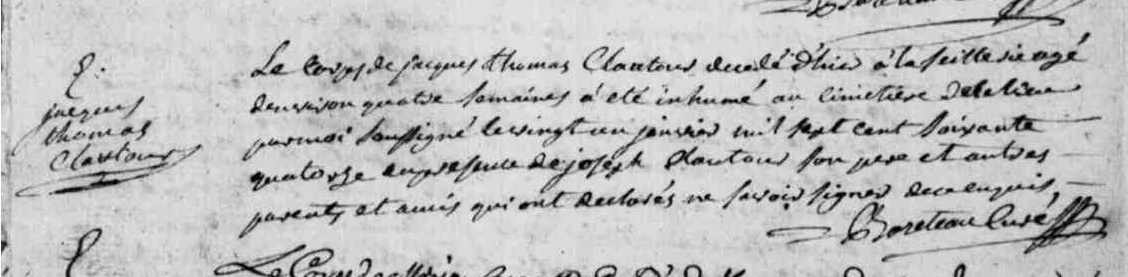 S.
jacques
thomas
Clautour
Le corps de jacques thomas Clautour decedé d'hier à la feitterie agé
d'environ quatre semaines a été inhumé au cimetière de ce lieu
par moi soussigné le vingt un janvier mil sept cent soixante
quatorze en presence de joseph Clautour son pere et autres
parents et amis qui ont declarés ne savoir signer de ce enquis
Boreteau Curé
Le Corps de Marie